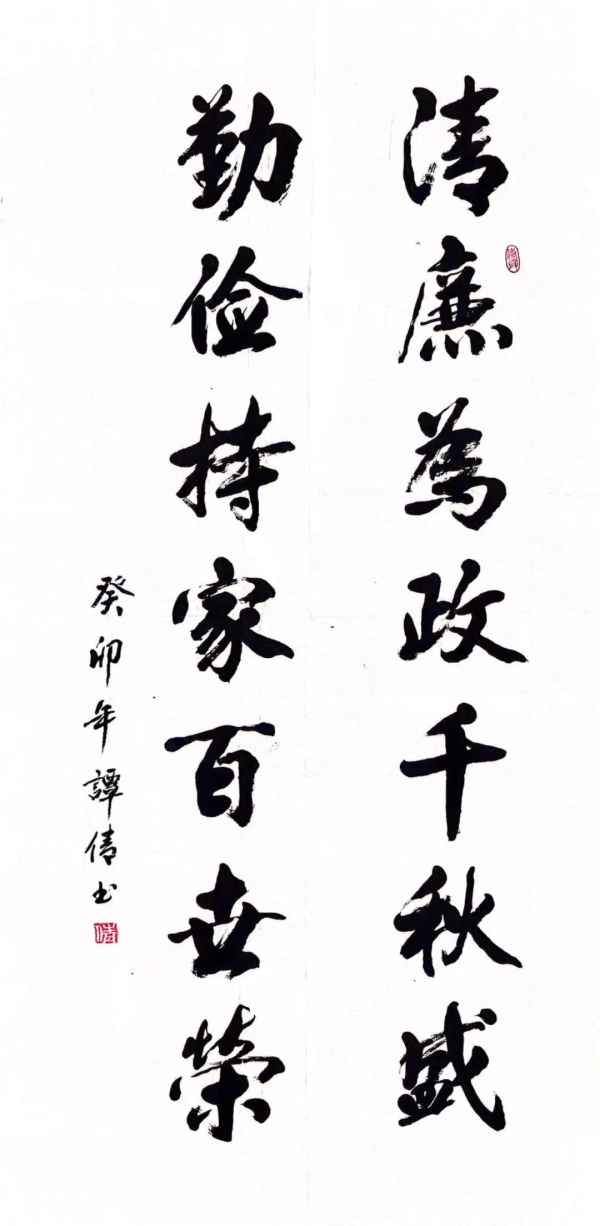 清廉為政千秋盛
勤儉持家百世榮
癸卯年譚倩书